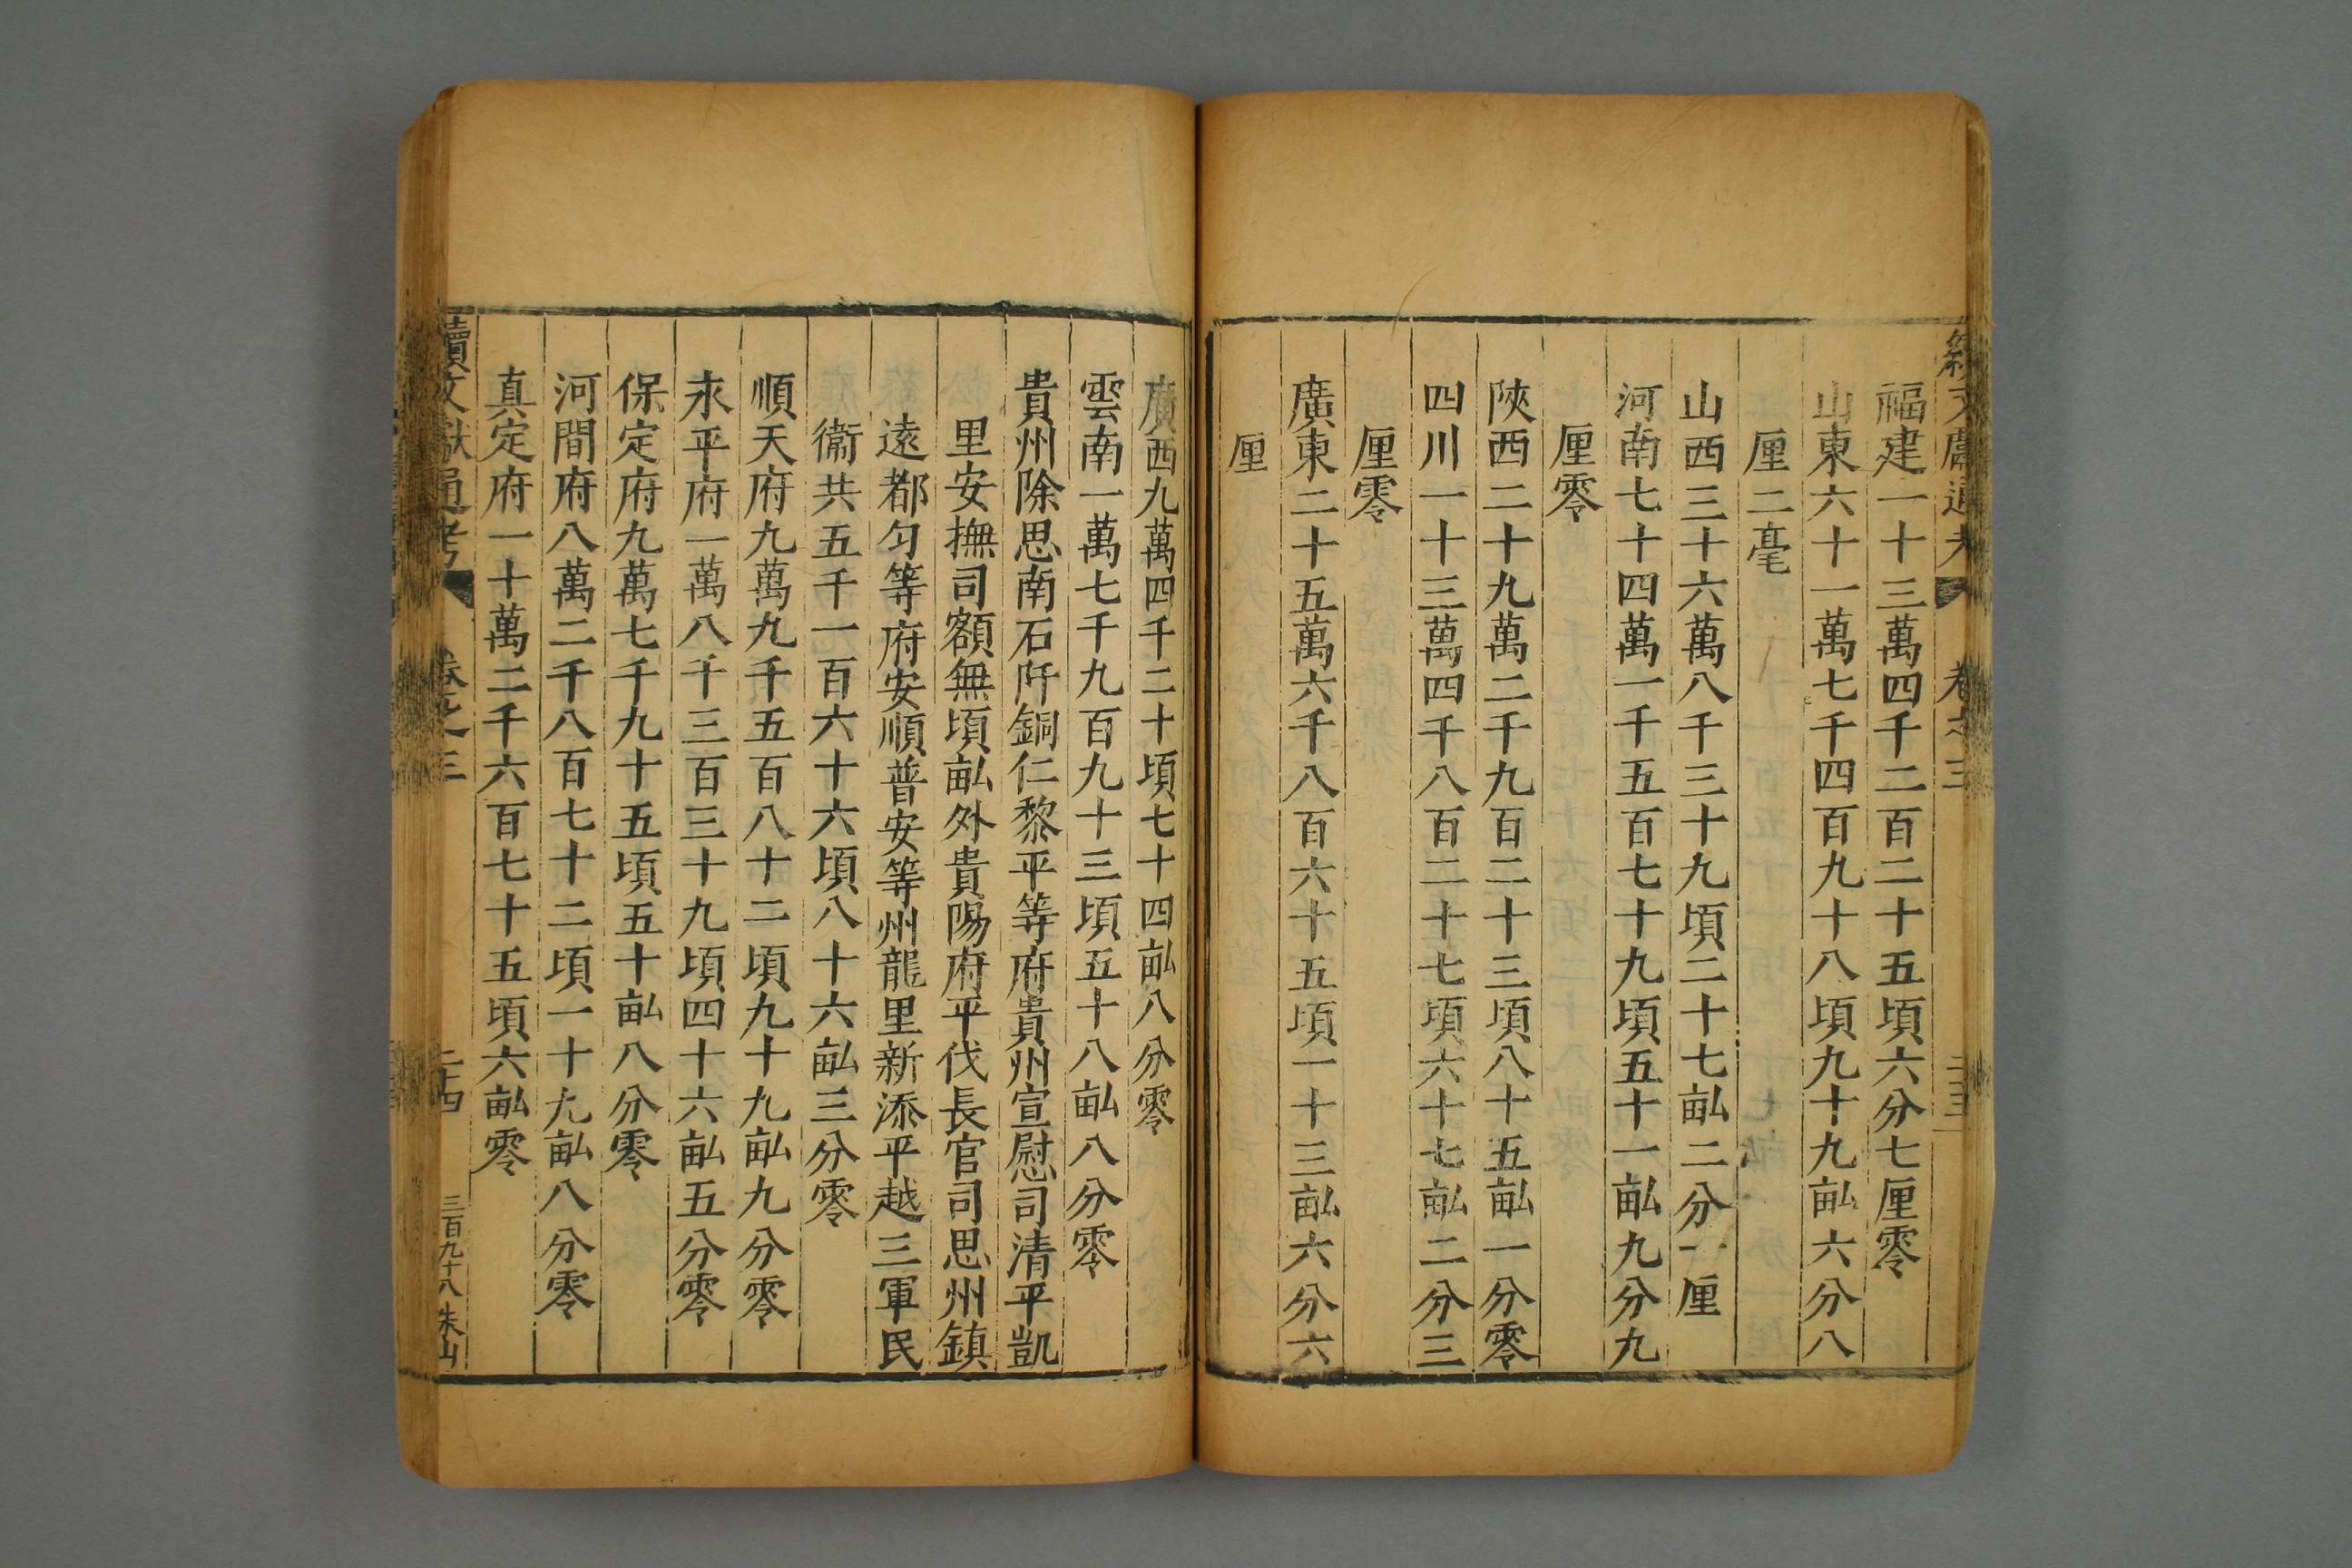 續文獻通考 卷之三 二十三
福建一十三萬四千二百二十五頃六分七厘零
山東六十一萬七千四百九十八頃九十九畒六分八
厘二毫
山西三十六萬八千三十九頃二十七畒二分一厘
河南七十四萬一千五百七十九頃五十一畒九分九
厘零
陜西二十九萬二千九百二十三頃八十五畒一分零
四川一十三萬四千八百二十七頃六十七畒二分三
厘零
廣東二十五萬六千八百六十五頃一十三畒六分六
厘
廣西九萬四千二十頃七十四畒八分零
雲南一萬七千九百九十三頃五十八畒八分零
貴州除思南石阡銅仁黎平等府貴州宣慰司清平凱
里安撫司額無頃畒外貴陽府平伐長官司思州鎮
遠都匀等府安順普安等州龍里新添平越三軍民
衞共五千一百六十六頃八十六畒三分零
順天府九萬九千五百八十二頃九十九畒九分零
永平府一萬八千三百三十九頃四十六畒五分零
保定府九萬七千九十五頃五十畒八分零
河間府八萬二千八百七十二頃一十九畒八分零
真定府一十萬二千六百七十五頃六畒零
續文獻通考 卷之三 二十四 三百九十八 朱山